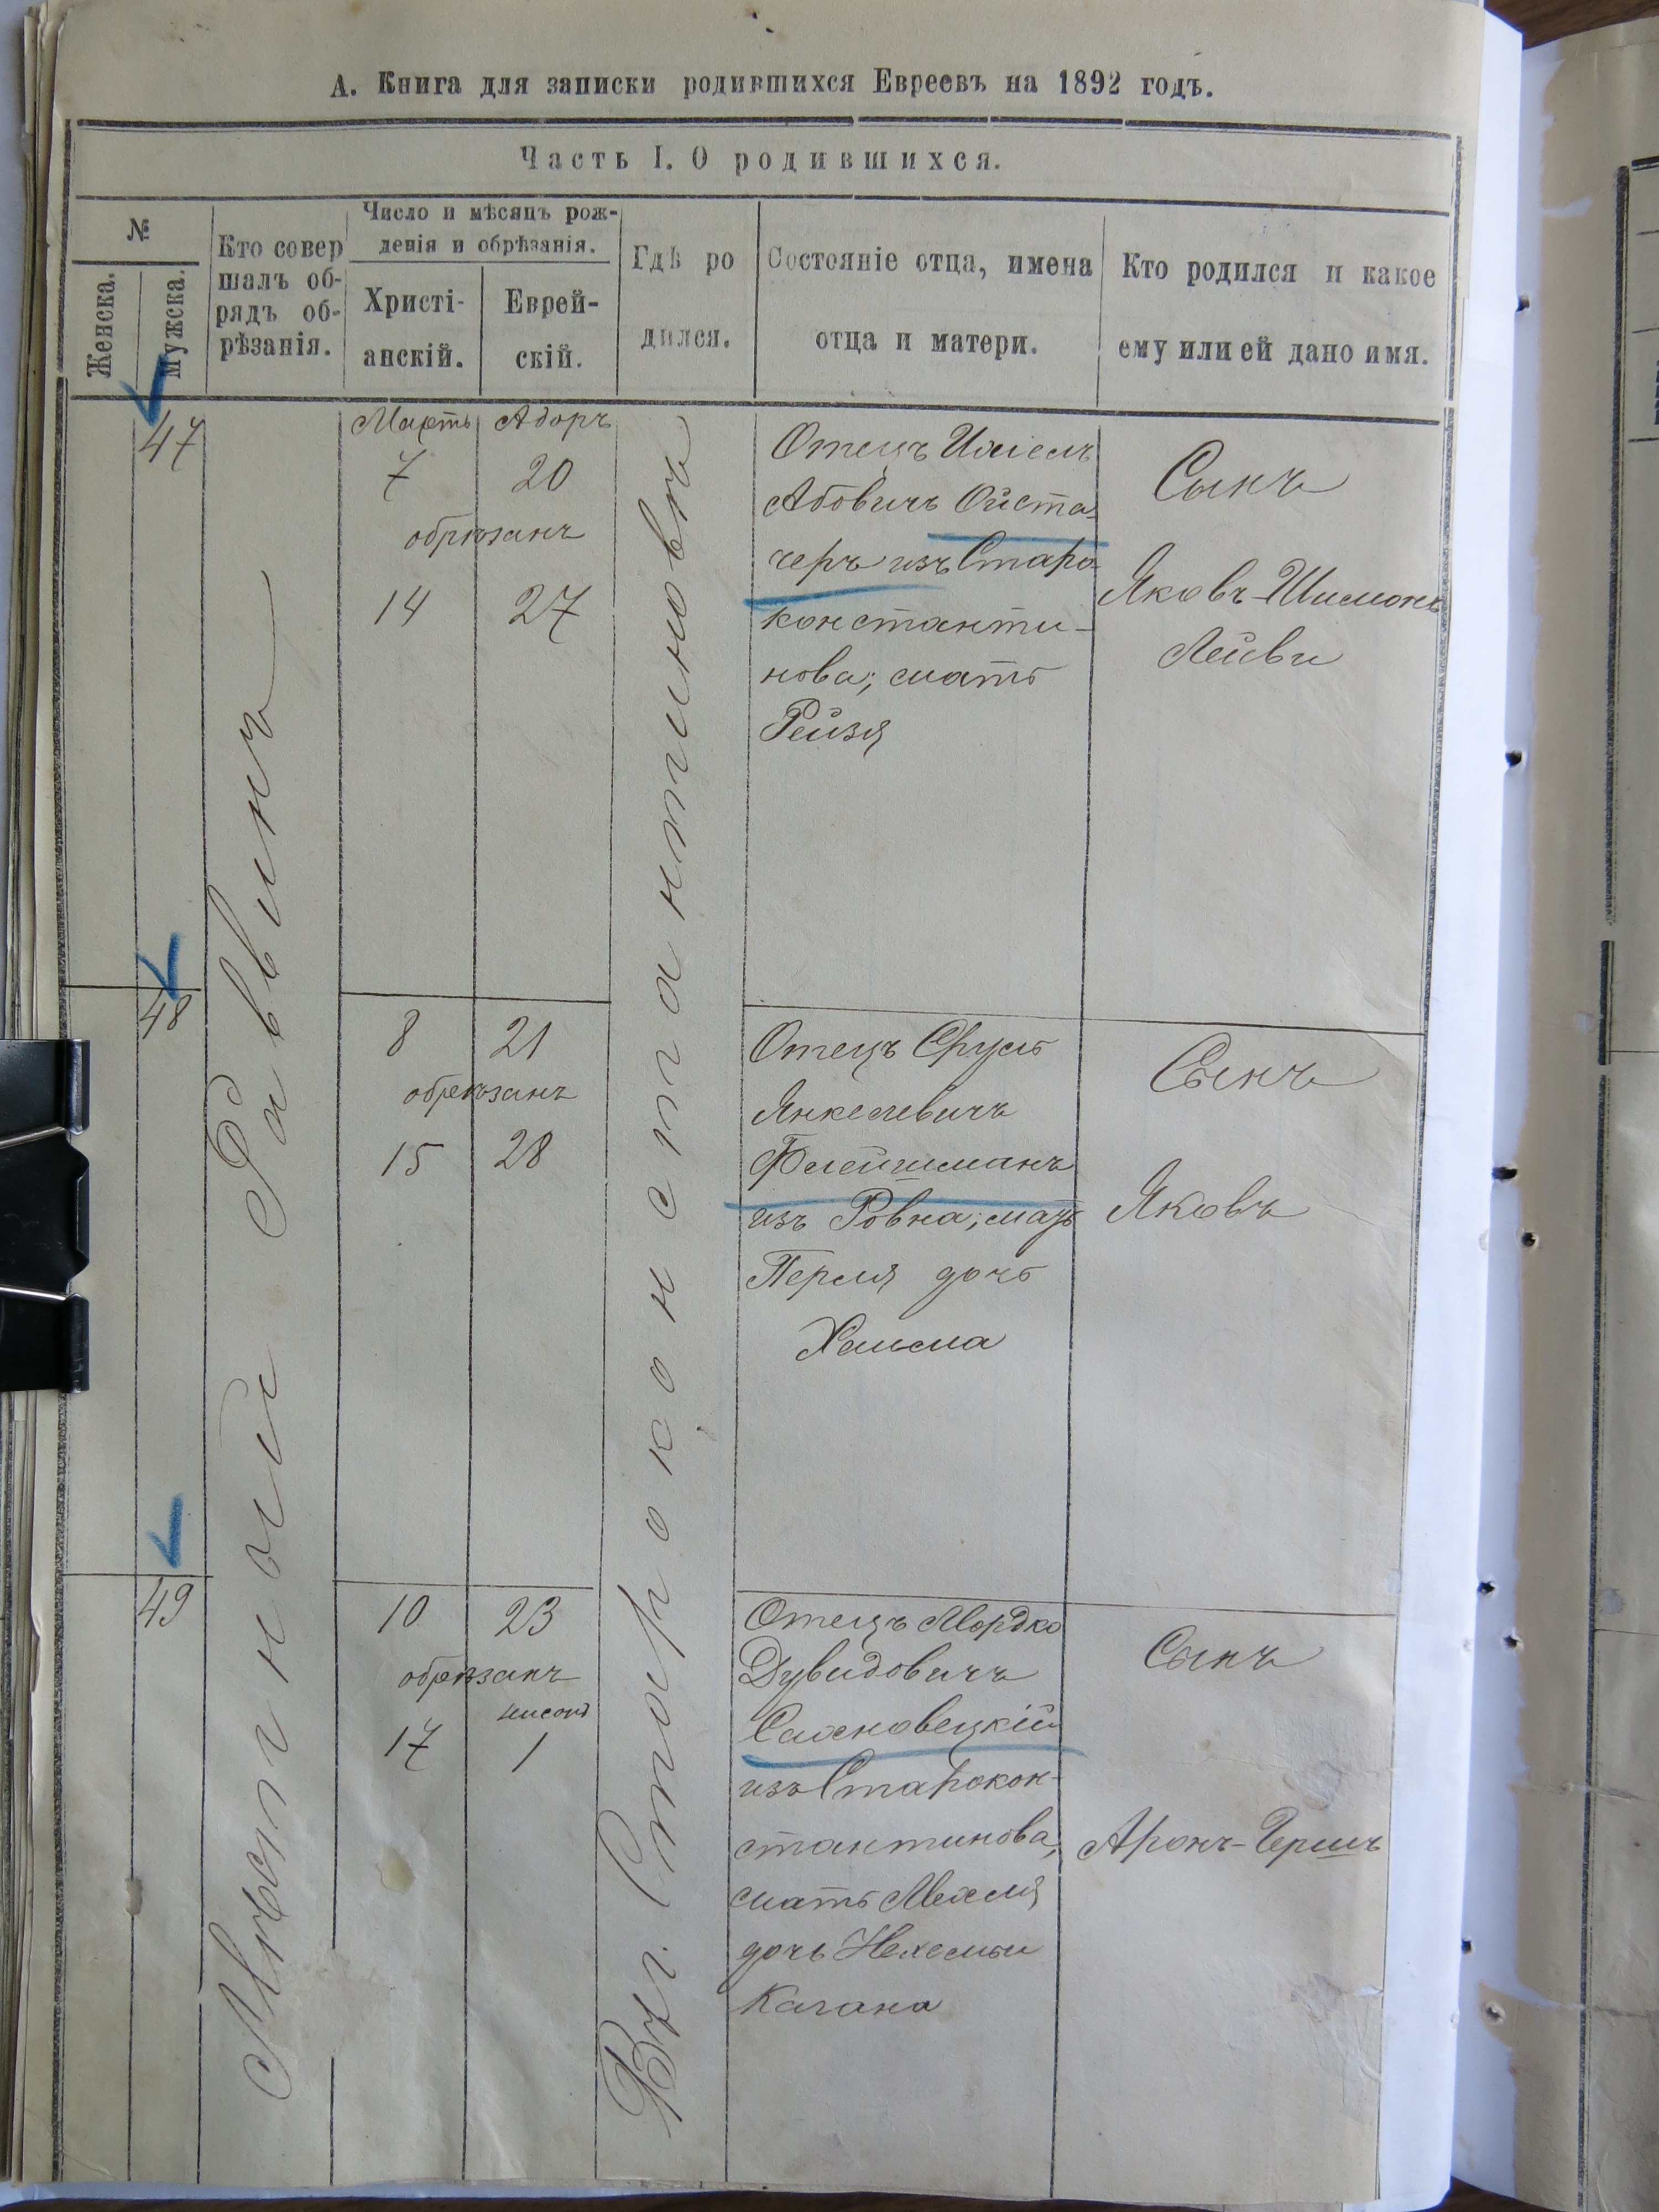 А. Книга для записки родившихся Евреевъ на 1892 годъ.
Часть I. О родившихся.
№
Женска.
Мужска.
Кто совер
шалъ об-
рядъ об-
рѣзанія.
Число и мѣсяцъ рож-
денія и обрѣзанія.
Христі-
анскій.
Еврей-
скій.
Гдѣ ро
дился.
Состояніе отца, имена
отца и матери.
Кто родился и какое
ему или ей дано имя.
Мѣстной Раввинъ
Въ г. Староконстантиновѣ
47
Мартъ Адоръ
7 20
обрѣзанъ
14 27
Отецъ Ихіель
Абовичъ Ойста-
черъ изъ Старо-
константи-
нова; мать
Рейзя
Сынъ
Яковъ-Шимонъ
Лейви
48
8 21
обрѣзанъ
15 28
Отецъ Сруль
Янкелевичъ
Флейшманъ
изъ Ровна; мать
Перля дочь
Хаима
Сынъ
Яковъ
49
10 23
обрѣзанъ
нисонъ
17 1
Отецъ Мордко
Дувидовичъ
Сахновецкій
изъ Старокон-
стантинова,
мать Махля
дочь Нехемьи
Кагана
Сынъ
Аронъ-Гершъ